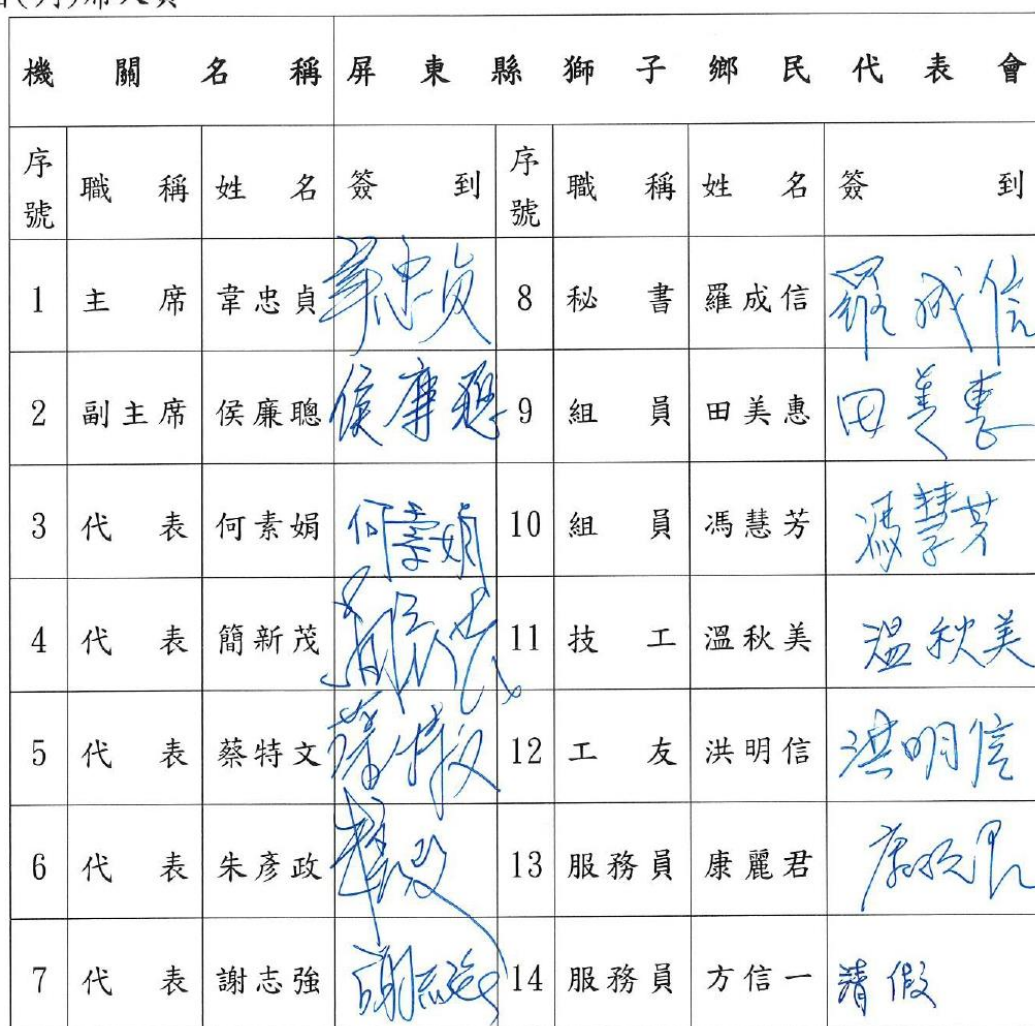 機關名稱 屏東縣獅子鄉民代表會
序號 職稱 姓名 簽到 序號 職稱 姓名 簽到
1 主席 韋忠貞 韋忠貞 8 秘書 羅成信 羅成信
2 副主席 侯廉聰 侯廉聰 9 組員 田美惠 田美惠
3 代表 何素娟 何素娟 10 組員 馮慧芳 馮慧芳
4 代表 簡新茂 11 技工 溫秋美 溫秋美
5 代表 蔡特文 蔡特文 12 工友 洪明信 洪明信
6 代表 朱彥政 13 服務員 康麗君 康麗君
7 代表 謝志強 謝志強 14 服務員 方信一 請假